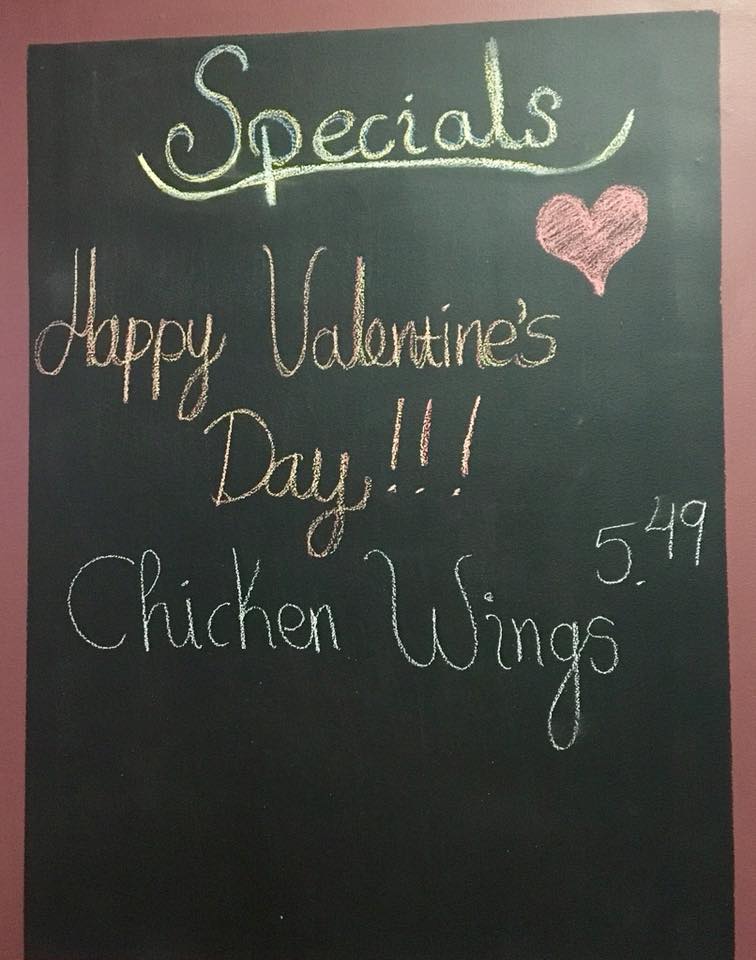 Specials
Happy Valentine's
Day!!!
5.49
Chicken Wings